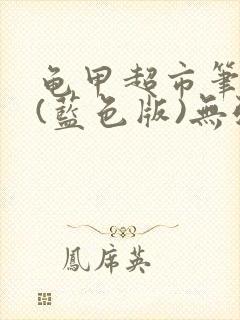 龟甲超市筆
(藍色版)無
鳳席英